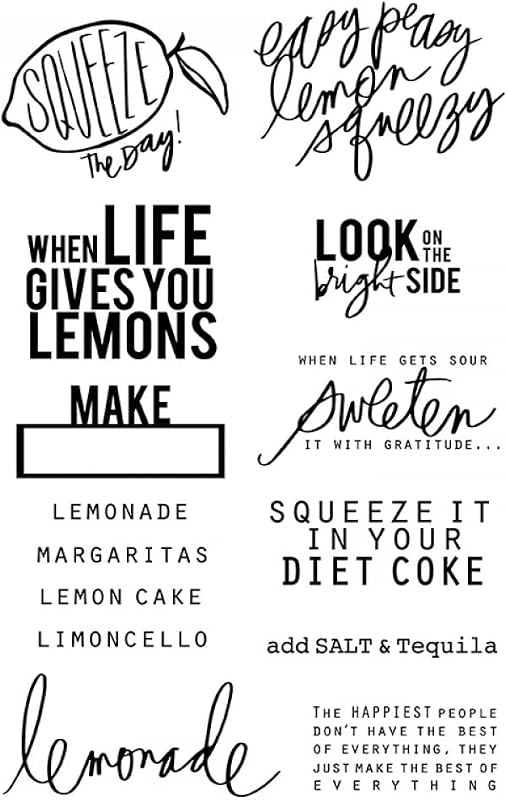 SQUEEZE
The Day!
easy peasy
lemon
squeezy
WHEN LIFE
GIVES YOU
LEMONS
MAKE
LOOK ON THE
bright SIDE
WHEN LIFE GETS SOUR
sweeten
IT WITH GRATITUDE...
LEMONADE
MARGARITAS
LEMON CAKE
LIMONCELLO
SQUEEZE IT
IN YOUR
DIET COKE
add SALT & Tequila
lemonade
THE HAPPIEST PEOPLE
DON'T HAVE THE BEST
OF EVERYTHING, THEY
JUST MAKE THE BEST OF
EVERYTHING